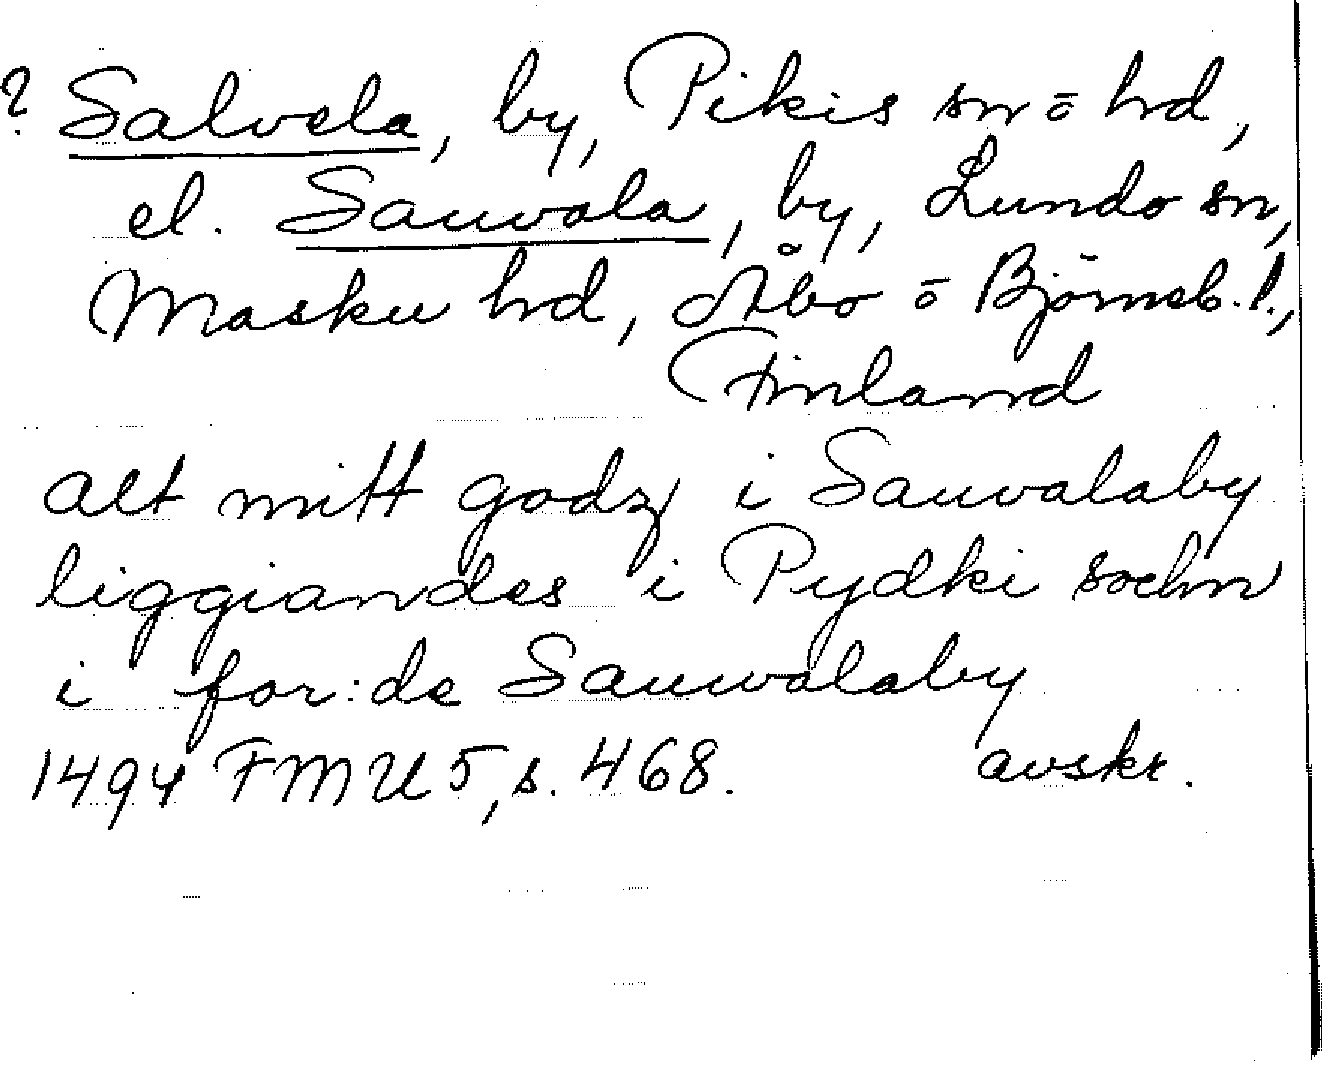 ? Salvela, by, Pikis sn ō hrd,
el. Sauvala, by, Lundo sn,
Masku hrd, Åbo ō Björneb. l.,
Finland
alt mitt godz i Sauvalaby
liggiandes i Pydki sochn
i for:de Sauwalaby
1494 FMU 5, s. 468. avskr.